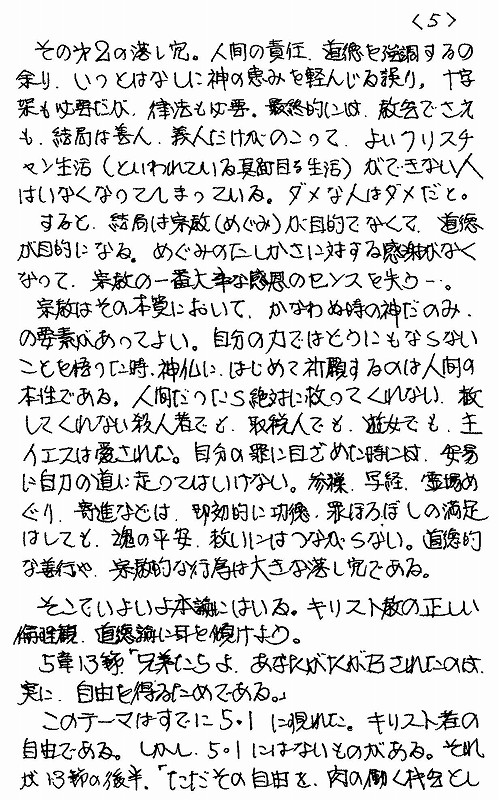 <5>
その第2の落し穴。人間の責任、道徳を強調するの
余り、いつとはなしに神の恵みを軽んじる誤り。十字
架も必要だが、律法も必要。最終的には、教会でさえ
も、結局は善人、義人だけがのこって、よいクリスチ
ャン生活（といわれている真面目な生活）ができない人
はいなくなってしまっている。ダメな人はダメだと。
すると、結局は宗教（めぐみ）が目的でなくて、道徳
が目的になる。めぐみのたしかさに対する感謝がなく
なって、宗教の一番大事な感恩のセンスを失う…。
宗教はその本質において、かなわぬ時の神だのみ、
の要素があってよい。自分の力ではどうにもならない
ことを悟った時、神仏に、はじめて祈願するのは人間の
本性である。人間だったら絶対に救ってくれない、赦
してくれない殺人者でも、取税人でも、遊女でも、主
イエスは愛された。自分の罪に目ざめた時には、安易
に自力の道に走ってはいけない。参禅、写経、霊場め
ぐり、寄進などは、即効的に功徳、罪ほろぼしの満足
はしても、魂の平安、救いにはつながらない。道徳的
な善行や、宗教的な行為は大きな落し穴である。
そこでいよいよ本論にはいる。キリスト教の正しい
倫理観、道徳論に耳を傾けよう。
5章13節「兄弟たちよ、あなたがたが召されたのは、
実に、自由を得るためである。」
このテーマはすでに5・1に現れた。キリスト者の
自由である。しかし、5・1にはないものがある。それ
が13節の後半、「ただその自由を、肉の働く機会とし